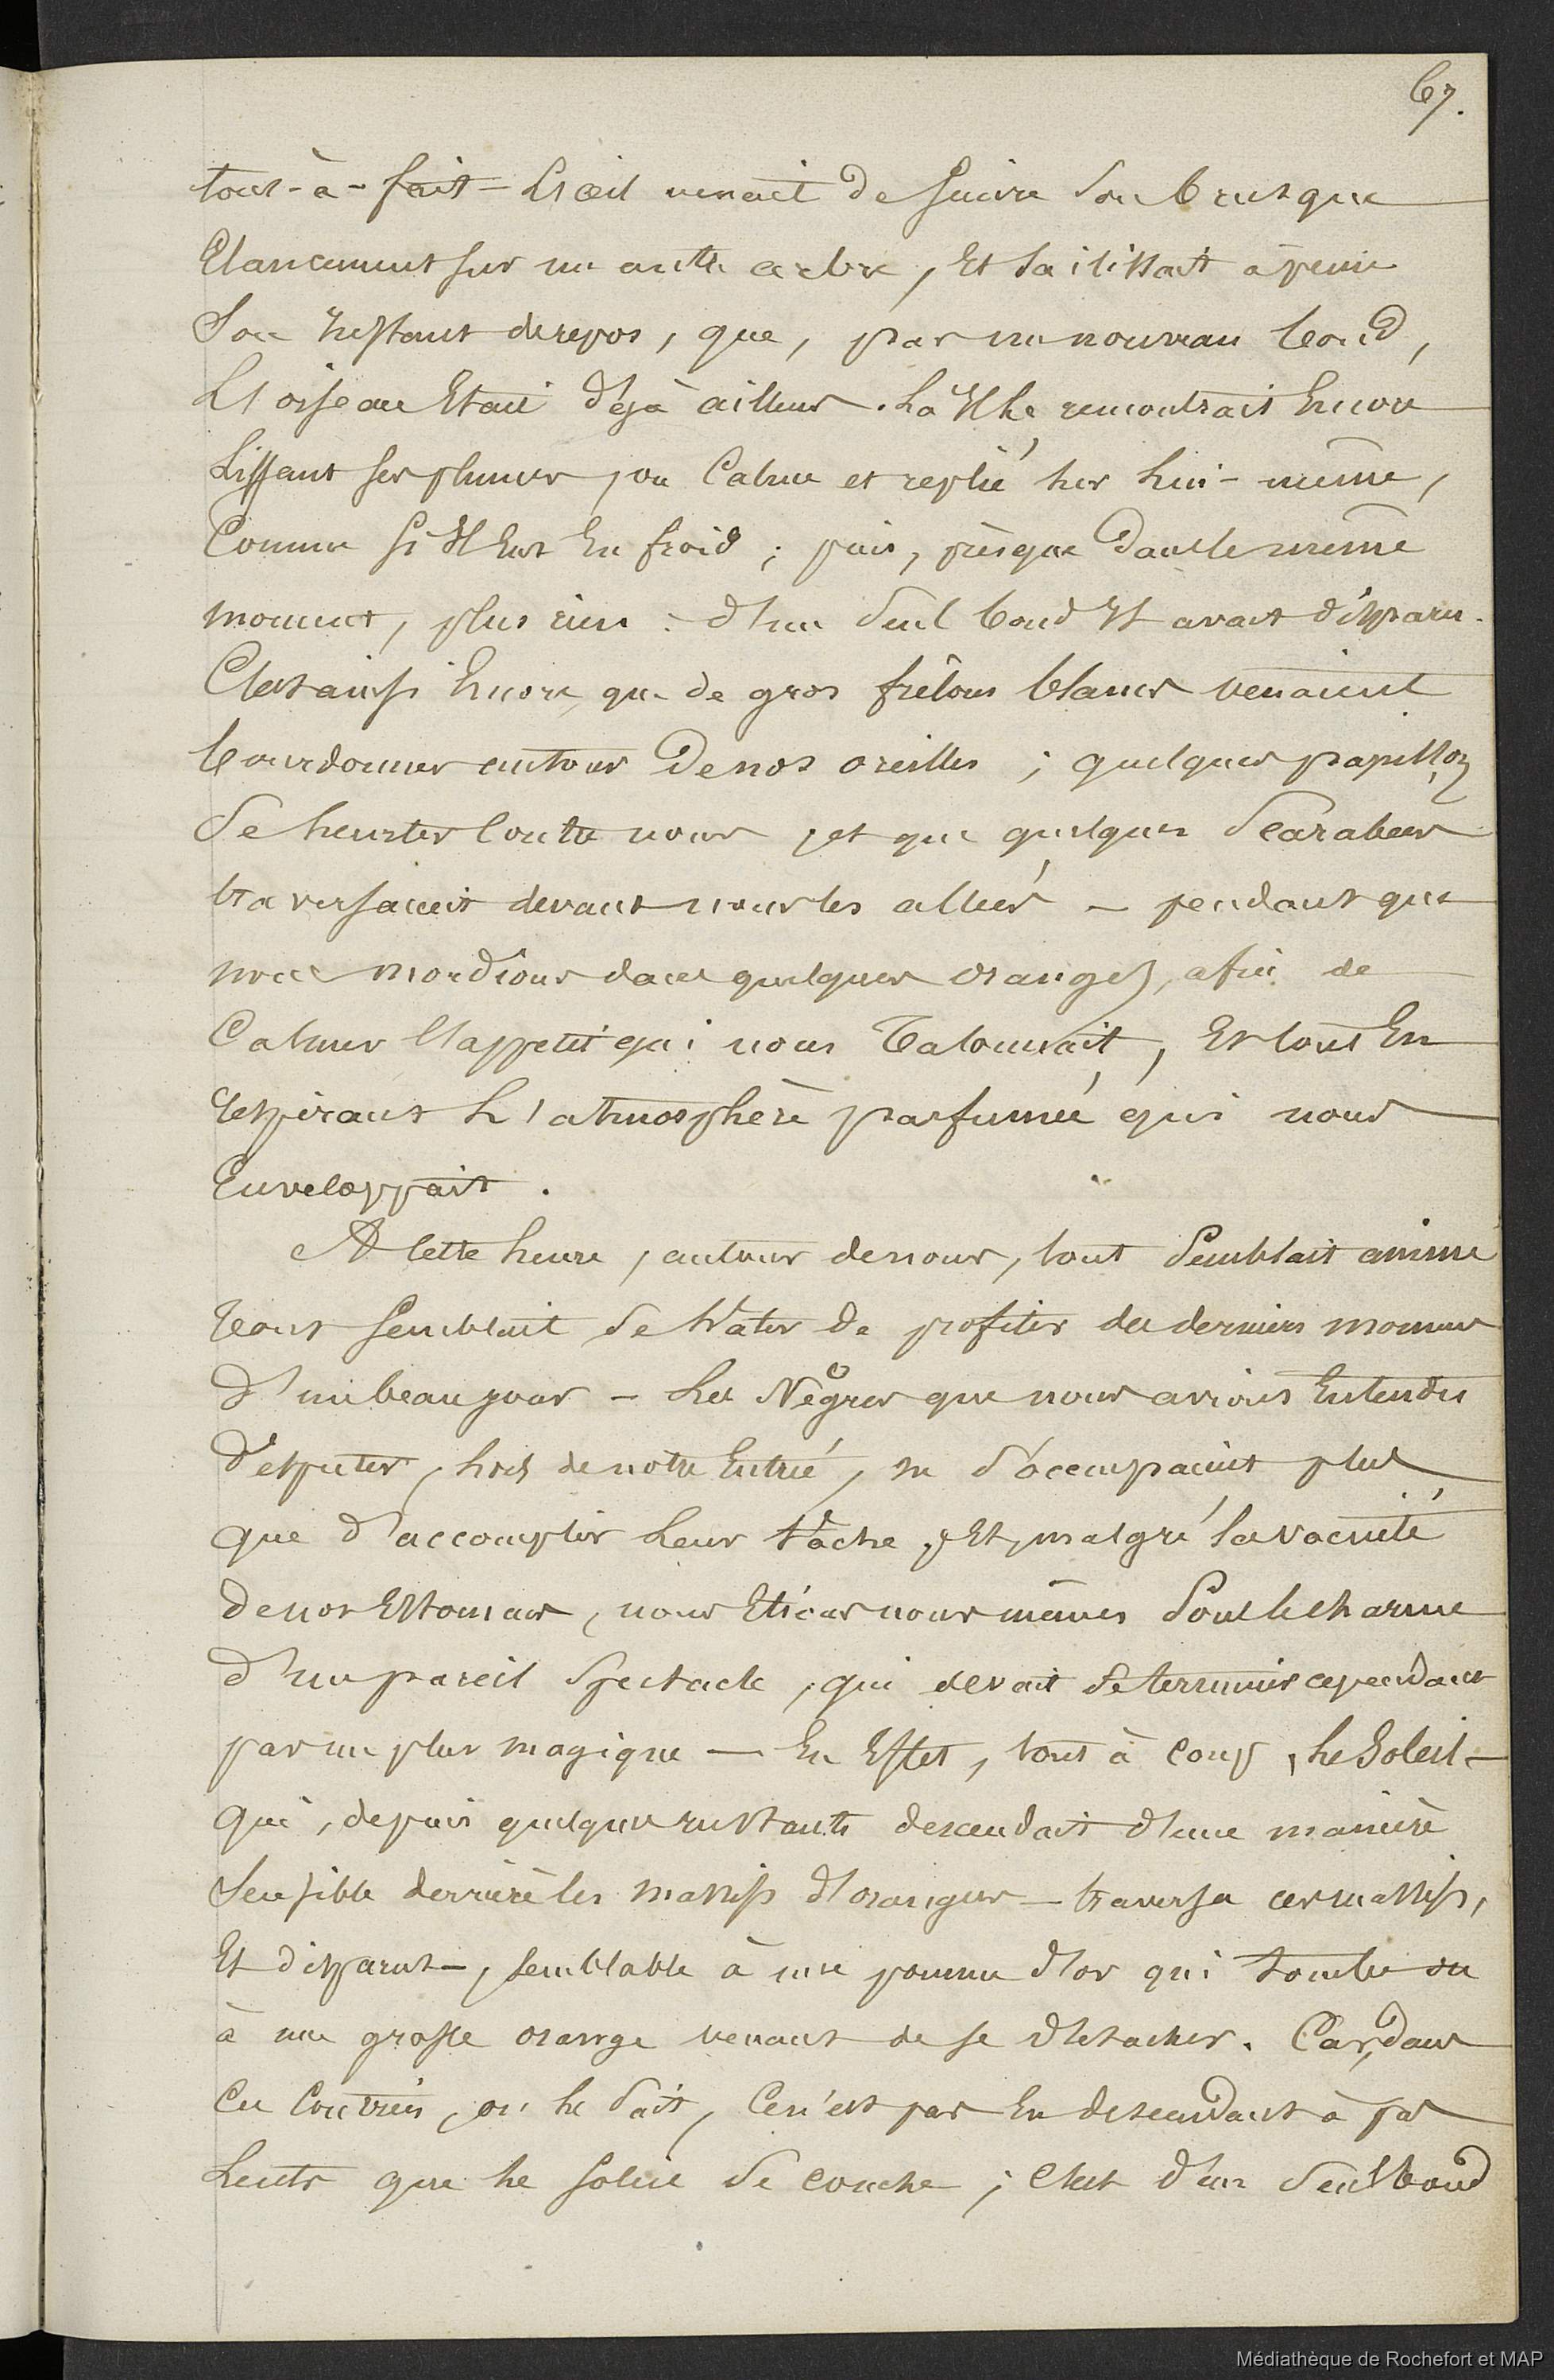 67.
tout-à-fait – L'œil venait de suivre son brusque
Elancement sur un autre arbre, Et saisissait à peine
Son Instant de repos, que, par un nouveau bond,
L'oiseau Etait déjà ailleurs. Là Il se remontrait Encore
Lissant ses plumes, ou Calme et replié sur lui-même,
Comme s'Il Eut Eu froid ; puis, prèsque dans le même
moment, plus rien : d'un seul bond Il avait disparu.
C'est ainsi Encore, que de gros frêlons blancs venaient
bourdonner autour de nos oreilles ; quelques papillons
Se heurter Contre nous, et que quelques Scarabees
traversaient devant nous les allées – pendant que
nous mordions dans quelques oranges, afin de
Calmer l'appetit qui nous Talonnait, Et tout En
respirant L'atmosphère parfumée qui nous
Enveloppait.
A Cette heure, autour de nous, tout Semblait animé
tout semblait se hâter de profiter des derniers moments
d'un beau jour – Les Nègres que nous avions Entendus
disputer, lors de notre Entrée, ne s'occupaient plus
que d'accomplir leur tâche, Et, malgré la vacuité
de nos Estomacs, nous Etions nous mêmes Sous le charme
d'un pareil Spectacle, qui devait se terminer cependant
par un plus magique – En Effet, tout à coup, le Soleil –
qui, depuis quelques instants descendait d'une manière
Sensible derrière les massifs d'orangers – traversa ces massifs,
Et disparut –, semblable à une pomme d'or qui tombe ou
à une grosse orange venant de se détacher. Car, dans
Ces Contrées, on le Sait, Ce n'est pas En descendant à pas
Lents que le soleil se couche ; C'est d'un Seul bond
Médiathèque de Rochefort et MAP